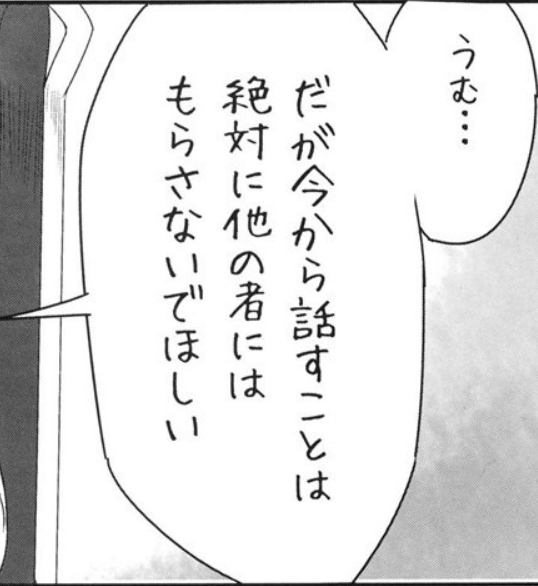 うむ…
だが今から話すことは
絶対に他の者には
もらさないでほしい